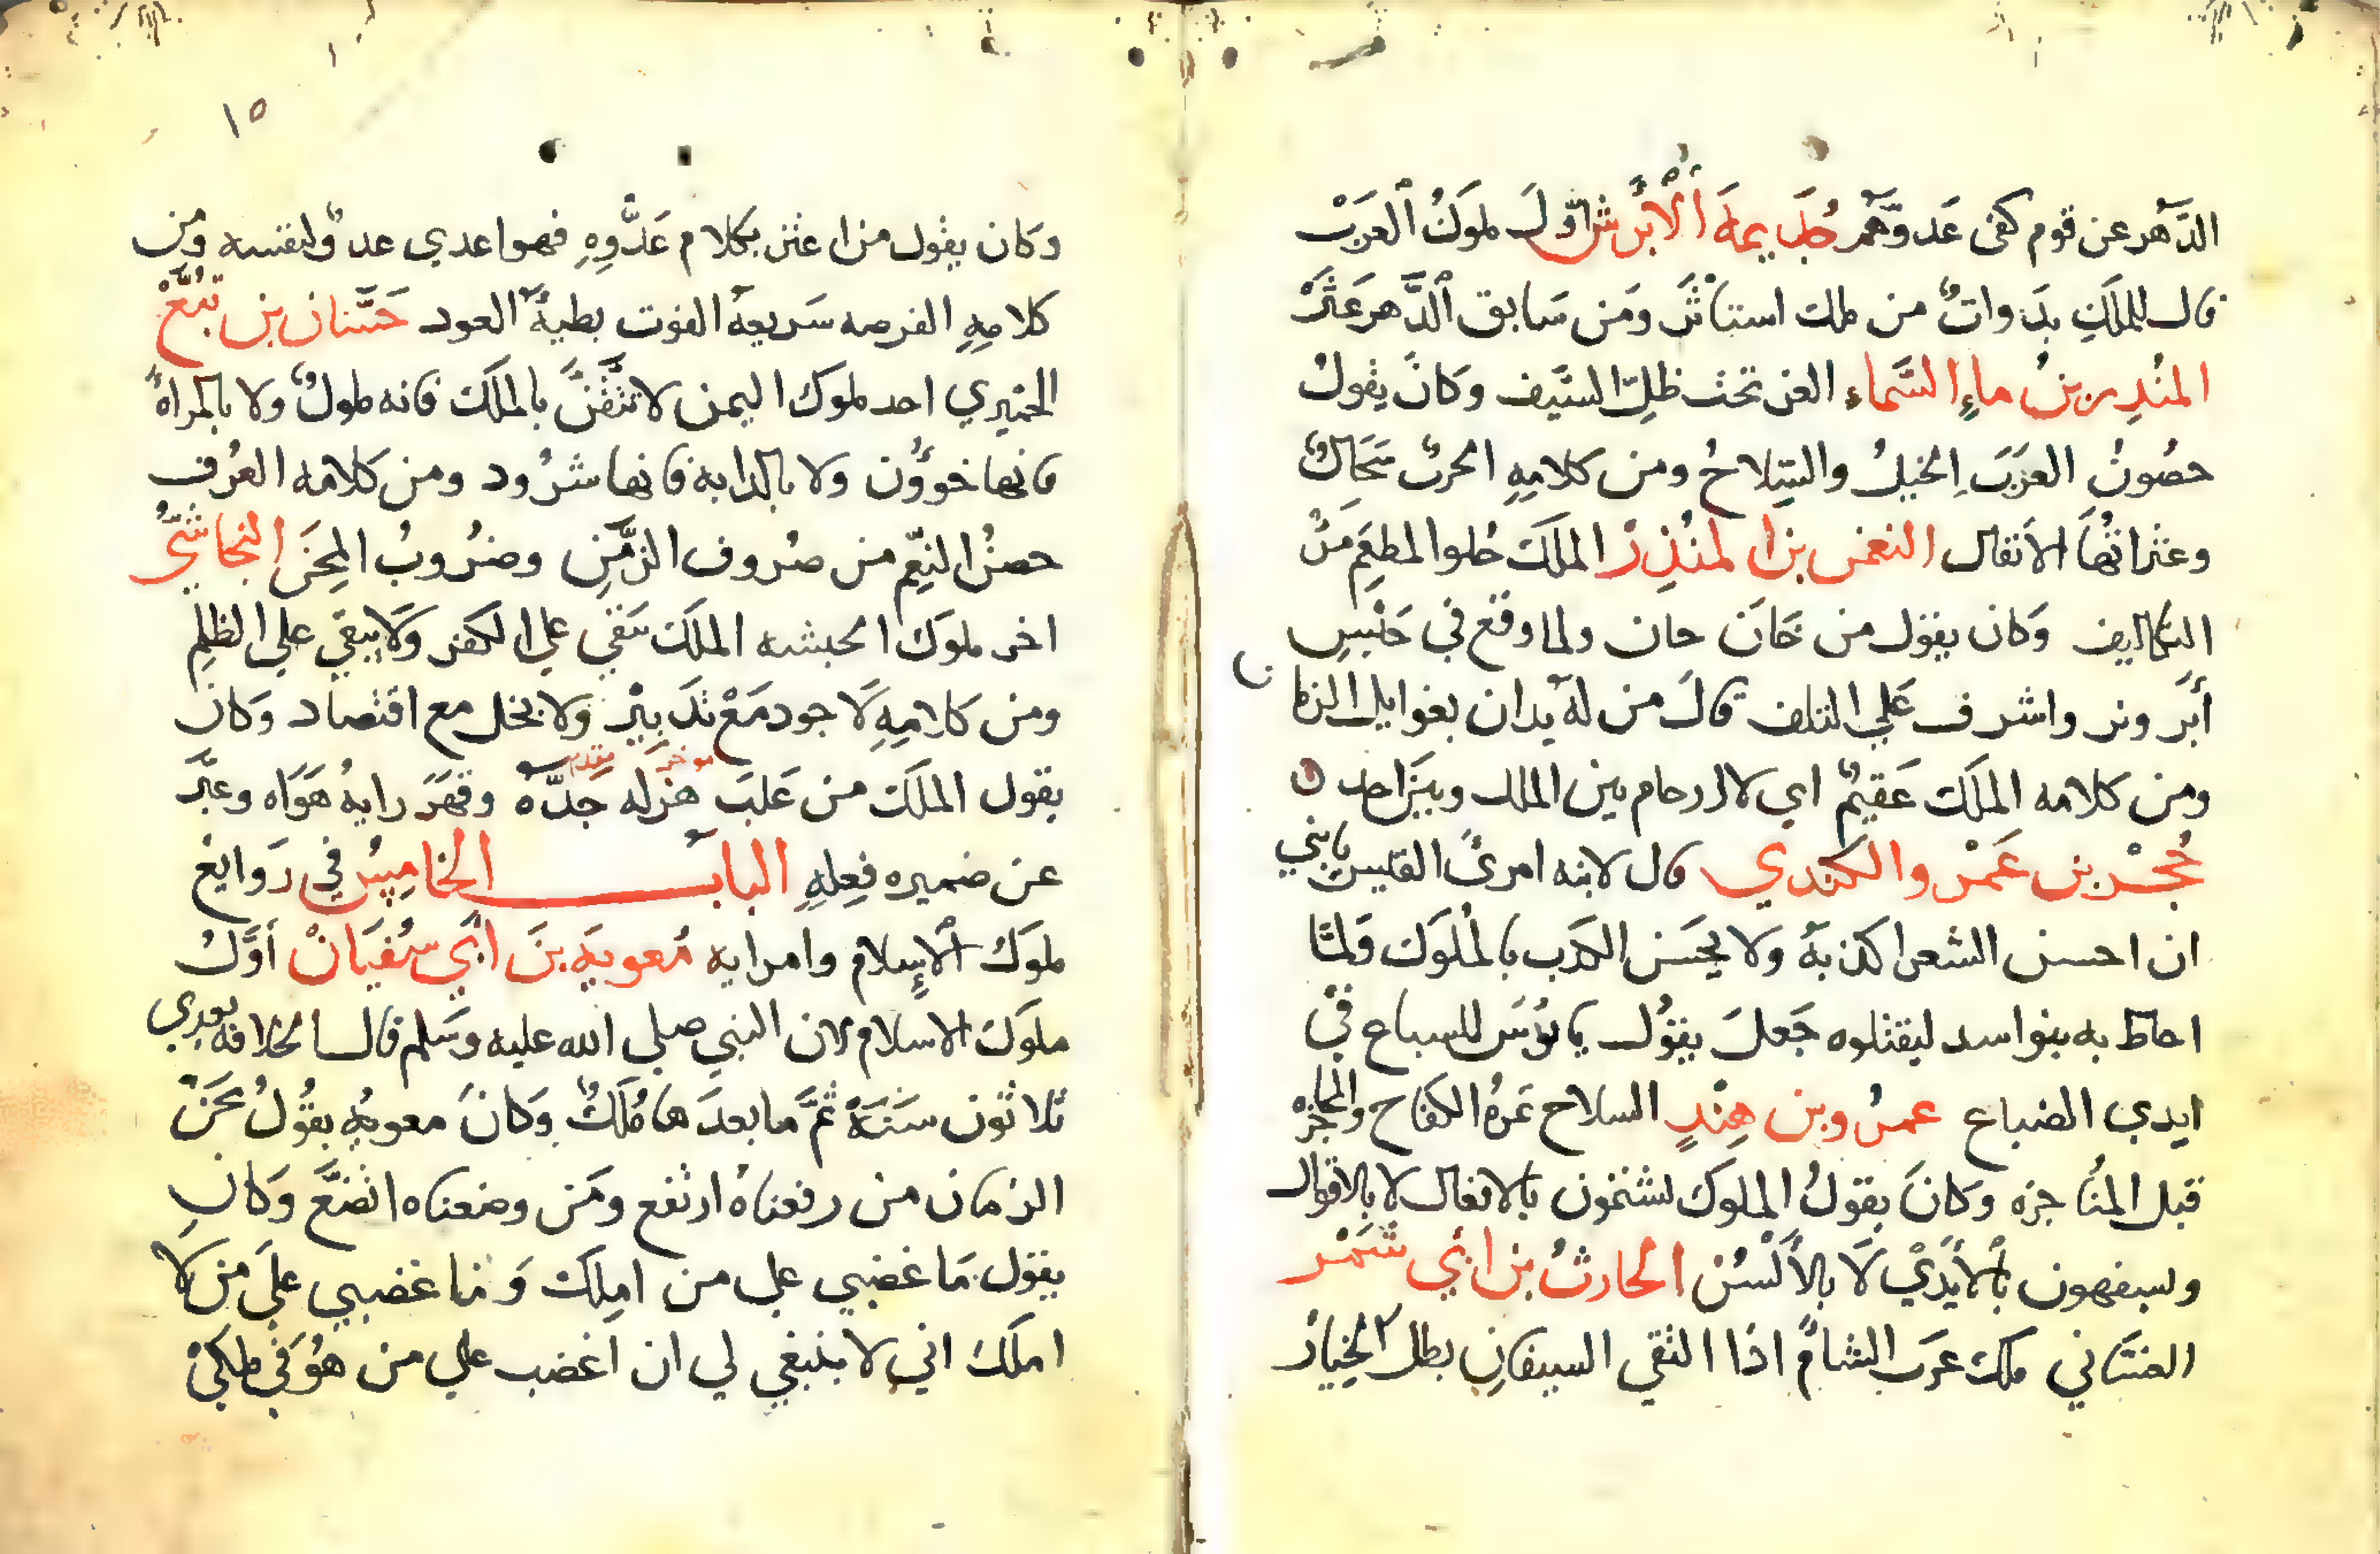 الدَّهر عن قوم كفى عَدوَّهُمْ جُذَيمة ألْأبْرش أوَّلُ ملوكُ ٱلعرَبْ
قال للملَكِ بدَواتٌ من ملك استأثرَ ومَن سَابق ٱلدَّهر عَثرْ
المنُدِر بنُ ماءِ السَّماءِ العز تحتَ ظلِّ السَّيف وكانَ يقولُ
حصُونُ العَرَبَ الخيلُ والسِّلاحُ ومن كلامِهِ الحربُ سِجَالٌ
وعثراتُهَا الاتقال النعمن بن المنُذِرْ الملكَ حلوا المطعَمِ مَرُّ
التكاليف وَكان يقول من خَانَ حان ولما وقع في حَبْسِ
أبَرَوِيز واشرف عَلي التلف قالَ من لهُ يدان بغوايل الزمان
ومن كلامه الملَكَ عَقيمٌ اي لا ارحام بين الملك وبين احد
حُجْر بن عَمْرو الكندي قال لابنه امرئ القيس يابني
ان احسن الشعر اكذبهَ ولا يحَسَن الكذب بالملُوكَ ولمَّا
احاط به بنوا اسد ليقتلوه جَعلَ يقوُل يا بؤسَ للسباع في
ايدي الضباع عمرُو بن هِنْدٍ السلاح ثم الكفاح والمحاجزه
قبل المنُاجزه وَكانَ يقولُ الملوكَ يشتمون بالافعال لا بالاقوال
ويسفهون بألأيَدْي لَا بالأَلْسُن الحارثُ بن ابي شَمْر
الغسَّاني ملك عرَب الشامْ اذا التقي السيفان بطل الخِيارْ
١٥
وكان يقول من اعتز بكلام عَدُّوهِ فهوا عدي عدوٌ لنفسه ومن
كلامِهِ الفرصه سَريعهَ الفوت بطيةُ العود حَسَّان بن تُبَّعْ
الحمْيري احد ملوك اليمن لا تثقنَّ بالملَكَ فانه ملولٌ ولا بالمرأة
فانها خوؤن ولا بالدابه فانها شرُود ومن كلامه العرُف
حصنُ النِعّم من صرُوف الزمَّنِ وضرُوبُ المِحَن النجاشيُّ
اخر ملوَكَ الحبشه الملكَ يبَقي علي الكفر وَلا يبقي علي الظلِم
ومن كلامِهِ لَا جود مَعْ تدَبيْر ولا بخل مع اقتصاد وكانَ
يقول الملَكَ من غَلبَ هزله جَدَّهُ وقهَرَ رايهُ هَوَاه وعبَّر
موخر مقدم
عن ضميره فِعلِهِ البابَ الخامِسُ في رَوايع
ملوَكَ ألاسِلام وامرايه مُعويَه بنَ ابَي سُفيَانْ أوَّلُ
ملوكَ الاسلام لان النبي صلي الله عليه وسَلم قال الخلافه بعدي
ثلاثون سَنَةً ثمَّ ما بعدَ ها مُلكٌ وكانَ معويهُ يقُولُ نحَنُ
الزمان من رفعناهُ ارتفع ومَن وضعناه اتضَعَّ وَكانِ
يقول مَا غضبي علي من املِكَ وَمَا غضبي علَي من لا
املكَ اني لا ينبغي لي ان اغضب علي من هوَُ في ملكيْ